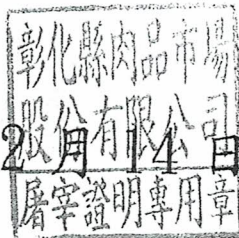 彰化縣肉品市場
股份有限公司
2月14日
屠宰證明專用章